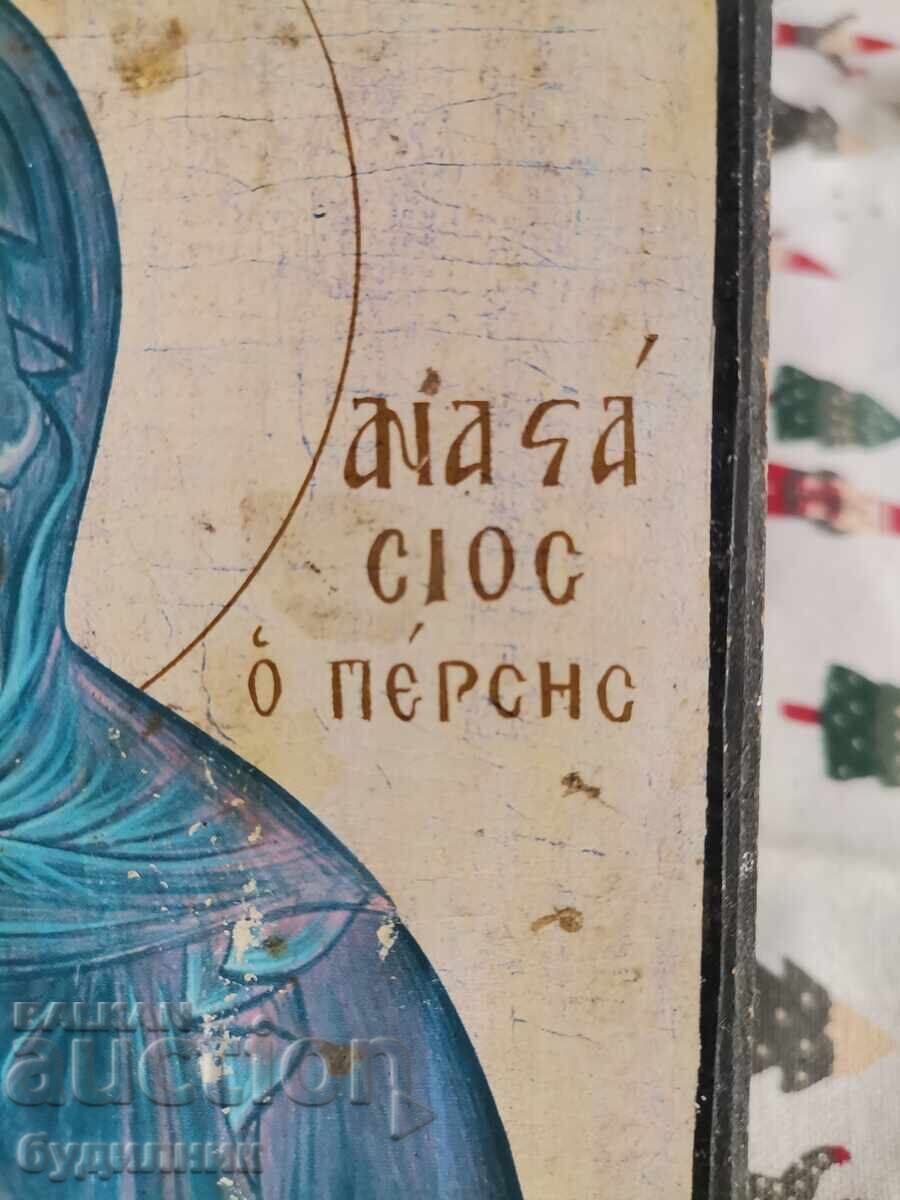 ΑΝΑϚΆ
CΙΟC
Ὁ ΠΈΡCΗC
BALKAN
auction
будилник